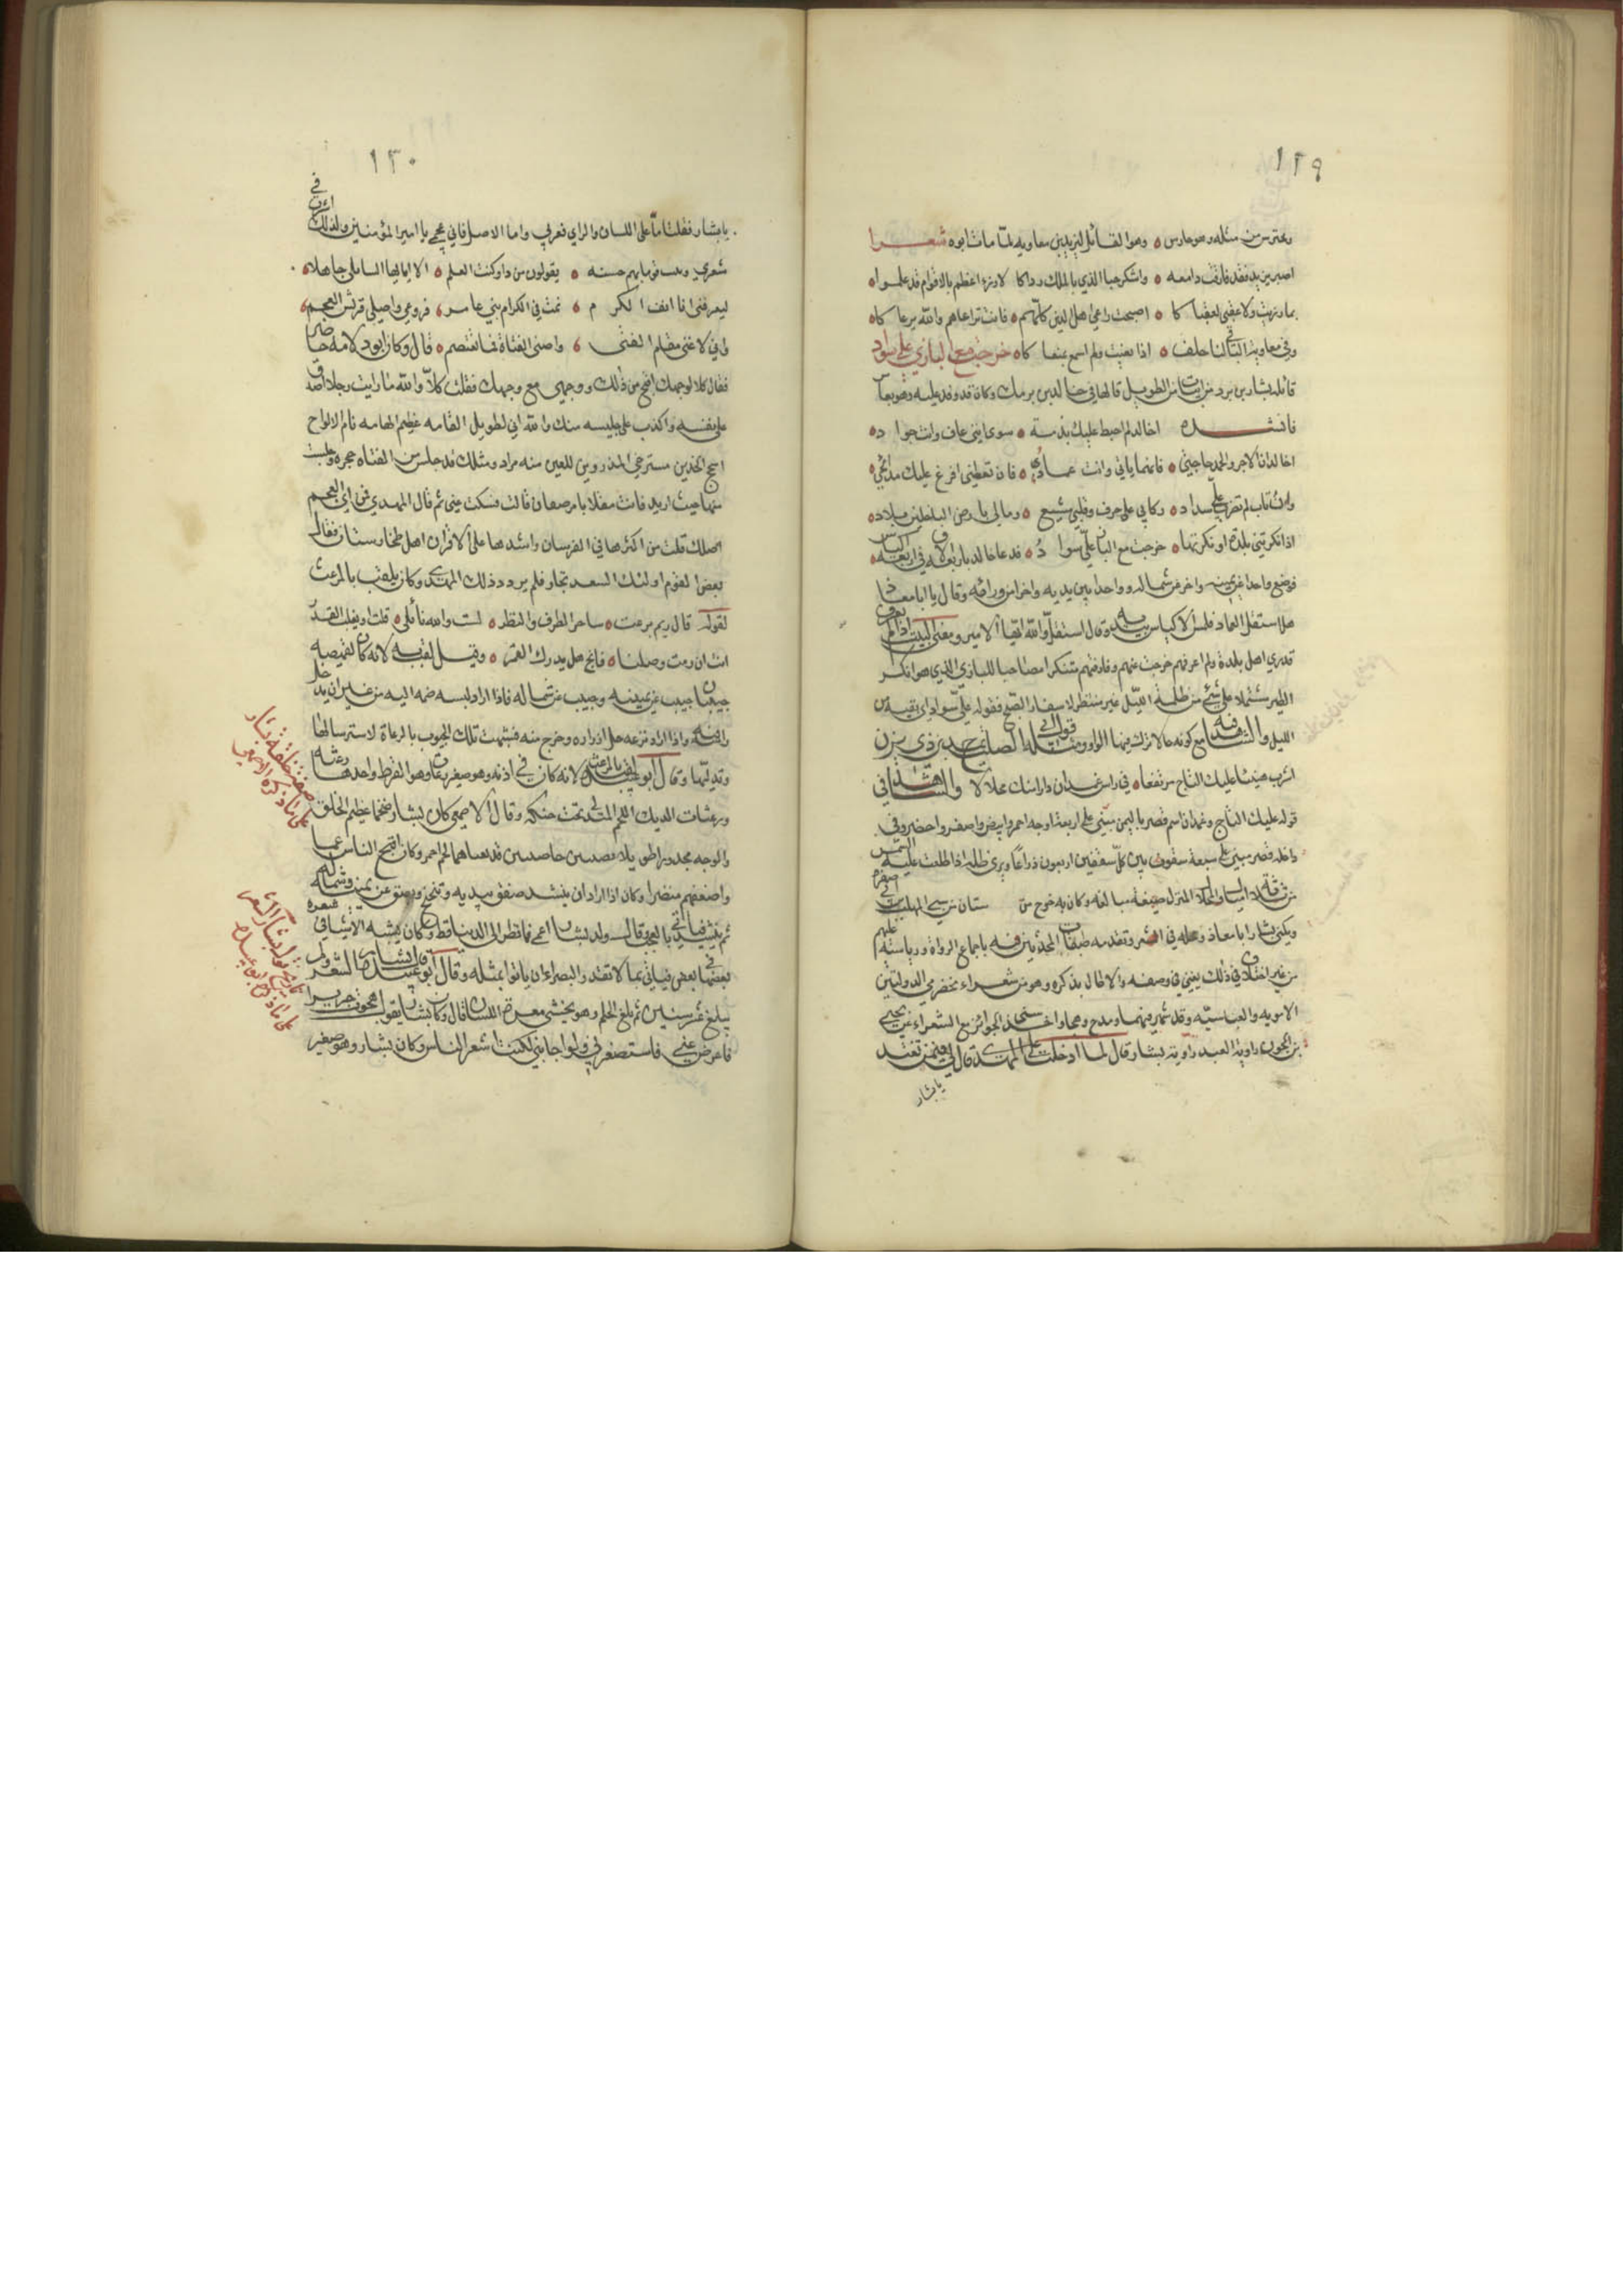 ١٢٩
وعترس من مثله وهو حارس ٥ وهو القائل ليزيد بن معاويه لما مات ابوه شعرا
اصبر يزيد فقد فارقت ذامقه ٥ واشكر حبا الذي بالملك رداكا لا رزء اعظم بالاقوام قد علموا ٥
بما رزئت ولا عقبى لعقباكا ٥ اصبحت راعي اهل الدين كلهم ٥ فانت ترعاهم والله يرعاكا ٥
وفي معاوية الباقي لنا خلف ٥ اذا نعيت ولم اسمع بمنعاكا ٥ خرجت مع البازي علي سواد
قائله بشار بن برد من ابيات من الطويل قالها في خالد بن برمك وكان قد وفد عليه وهو بفارس
فانشده اخالد لم اخبط عليك بذمة ٥ سوى انني عاف وانت جواد ٥
اخالد ان الاجر والحمد حاجتي ٥ فايهما ياتي وانت عماد ٥ فان تعطني افرغ عليك مدائحي ٥
وان تاب لم تضرب علي سداد ٥ ركابي على حرف وقلبي مشيع ٥ ومالي بارض الباخلين بلاد ٥
اذا انكرتني بلدة او نكرتها ٥ خرجت مع البازي علي سواد ٥ فدعا خالد باربعة الاف في اربعة اكياس
فوضع واحدا عن يمينه واخر عن شماله وواحدا بين يديه واخر من ورائه وقال يا ابا معاذ
هل استقل العماد فلمس الاكياس بيده وقال استقل والله ايها الامير ومعنى البيت اذا لم يعرف
قدري اهل بلدة ولم اعرفهم خرجت عنهم وفارقتهم متنكرا مصاحبا للبازي الذي هو ابكر
الطير مشتملا على شيء من ظلمة الليل غير منتظر لاسفار الصبح فقوله علي سواد اي بقية من
الليل والشاهد فيه مع كونه حالا ترك فيها الواو ومثله قول ابي الصلت يمدح ابن ذي يزن
اشرب هنيئا عليك التاج مرتفعا ٥ في راس غمدان دارا منك محلالا والشاهد في
قوله عليك التاج وغمدان اسم قصر باليمن مبني على اربعة اوجه احمر وابيض واصفر واخضر وفي
داخله قصر مبني على سبعة سقوف بين كل سقفين اربعون ذراعا ويرى ظله اذا طلعت عليه الشمس
ويكنى بشار ابا معاذ ومحله في الشعر وتقدمه طبقات المحدثين فيه باجماع الرواة ورياسته عليهم
من غير اختلاف في ذلك يغني في وصفه والاطالة بذكره وهو من شعراء مخضرمي الدولتين
الاموية والعباسيه وقد شهر فيهما ومدح وهجا واخذ سني الجوائز مع الشعراء عن يحيى
بن الجون العبدي راوية بشار قال لما ادخلت على المهدي قال لي فيمن تعتد
يا بشار
١٣٠
يا بشار فقلت اما على اللسان والراي فعربي واما الاصل فاني عجمي يا امير المؤمنين ولذلك اقول في
شعري ونبئت قوما بهم جنة ٥ يقولون من ذا وكنت العلم ٥ الا ايها السائلي جاهلا ٥
ليعرفني انا انف الكرم ٥ نمت في الكرام بني عامر ٥ فروعي واصلي قريش العجم ٥
واني لاغني مقام الفتى ٥ واصبي الفتاة فما تعتصم ٥ قال وكان ابو دلامة حاضرا
فقال كلا لوجهك اقبح من ذلك ووجهي مع وجهك فقلت كلا والله ما رايت رجلا اصدق
على نفسه واكذب على جليسه منك والله اني لطويل القامه عظيم الهامه تام الالواح
اسجح الخدين مسترخي المذروين للعين منه مراد ومثلك قد جلس من الفتاه حجره وجلست
منها حيث اريد فانت مثلي يا مرضعان قالت فسكت عني ثم قال المهدي فمن اي العجم
اصلك قلت من اكثرها في الفرسان واشدها على الاقران اهل طخارستان فقال
بعض القوم اولئك السغد تجار فلم يردد ذلك المهدي وكان يلقب بالمرعث
لقوله قال ريم مرعث ٥ ساحر الطرف والنظر ٥ لست والله نائلي ٥ قلت او يغلب القدر
انت ان رمت وصلنا ٥ فانج هل يدرك القمر ٥ وقيل لقب به لانه كان لقميصه
جيبان جيب عن يمينه وجيب عن شماله فاذا اراد لبسه ضمه اليه من غير ان يدخل
راسه فيه واذا اراد نزعه حل ازراره وخرج منه فشبهت تلك الجيوب بالرعاث لاسترسالها
وتدليها وقال ابو عبيدة لقب بالمرعث لانه كان في اذنه وهو صغير رعاث وهو القرط واحدها رعثه
ورعثات الديك اللحم المتدلي تحت حنكه وقال الاصمعي كان بشار ضخما عظيم الخلق
والوجه مجدورا طويلا جاحظ الحدقتين قد تغشاهما لحم احمر وكان اقبح الناس عمى
وافظعهم منظرا وكان اذا اراد ان ينشد صفق بيديه وتنحنح وبصق عن يمينه وشماله
ثم ينشد فياتي بالعجب قال ولد بشار اعمى فما نظر الى الدنيا قط وكان يشبه الاشياء في شعره
بعضها ببعض فياتي بما لا تقدر البصراء ان ياتوا بمثله وقال ابو عبيدة قال بشار الشعر ولم
يبلغ عشر سنين ثم بلغ الحلم وهو يخشى معرة اللسان قال وكان بشار يقول هجوت جريرا
فاعرض عني فاستصغرني ولو اجابني لكنت اشعر الناس وكان بشار وهو صغير
صفة خلقة بشار
على ما ذكره الاصمعي